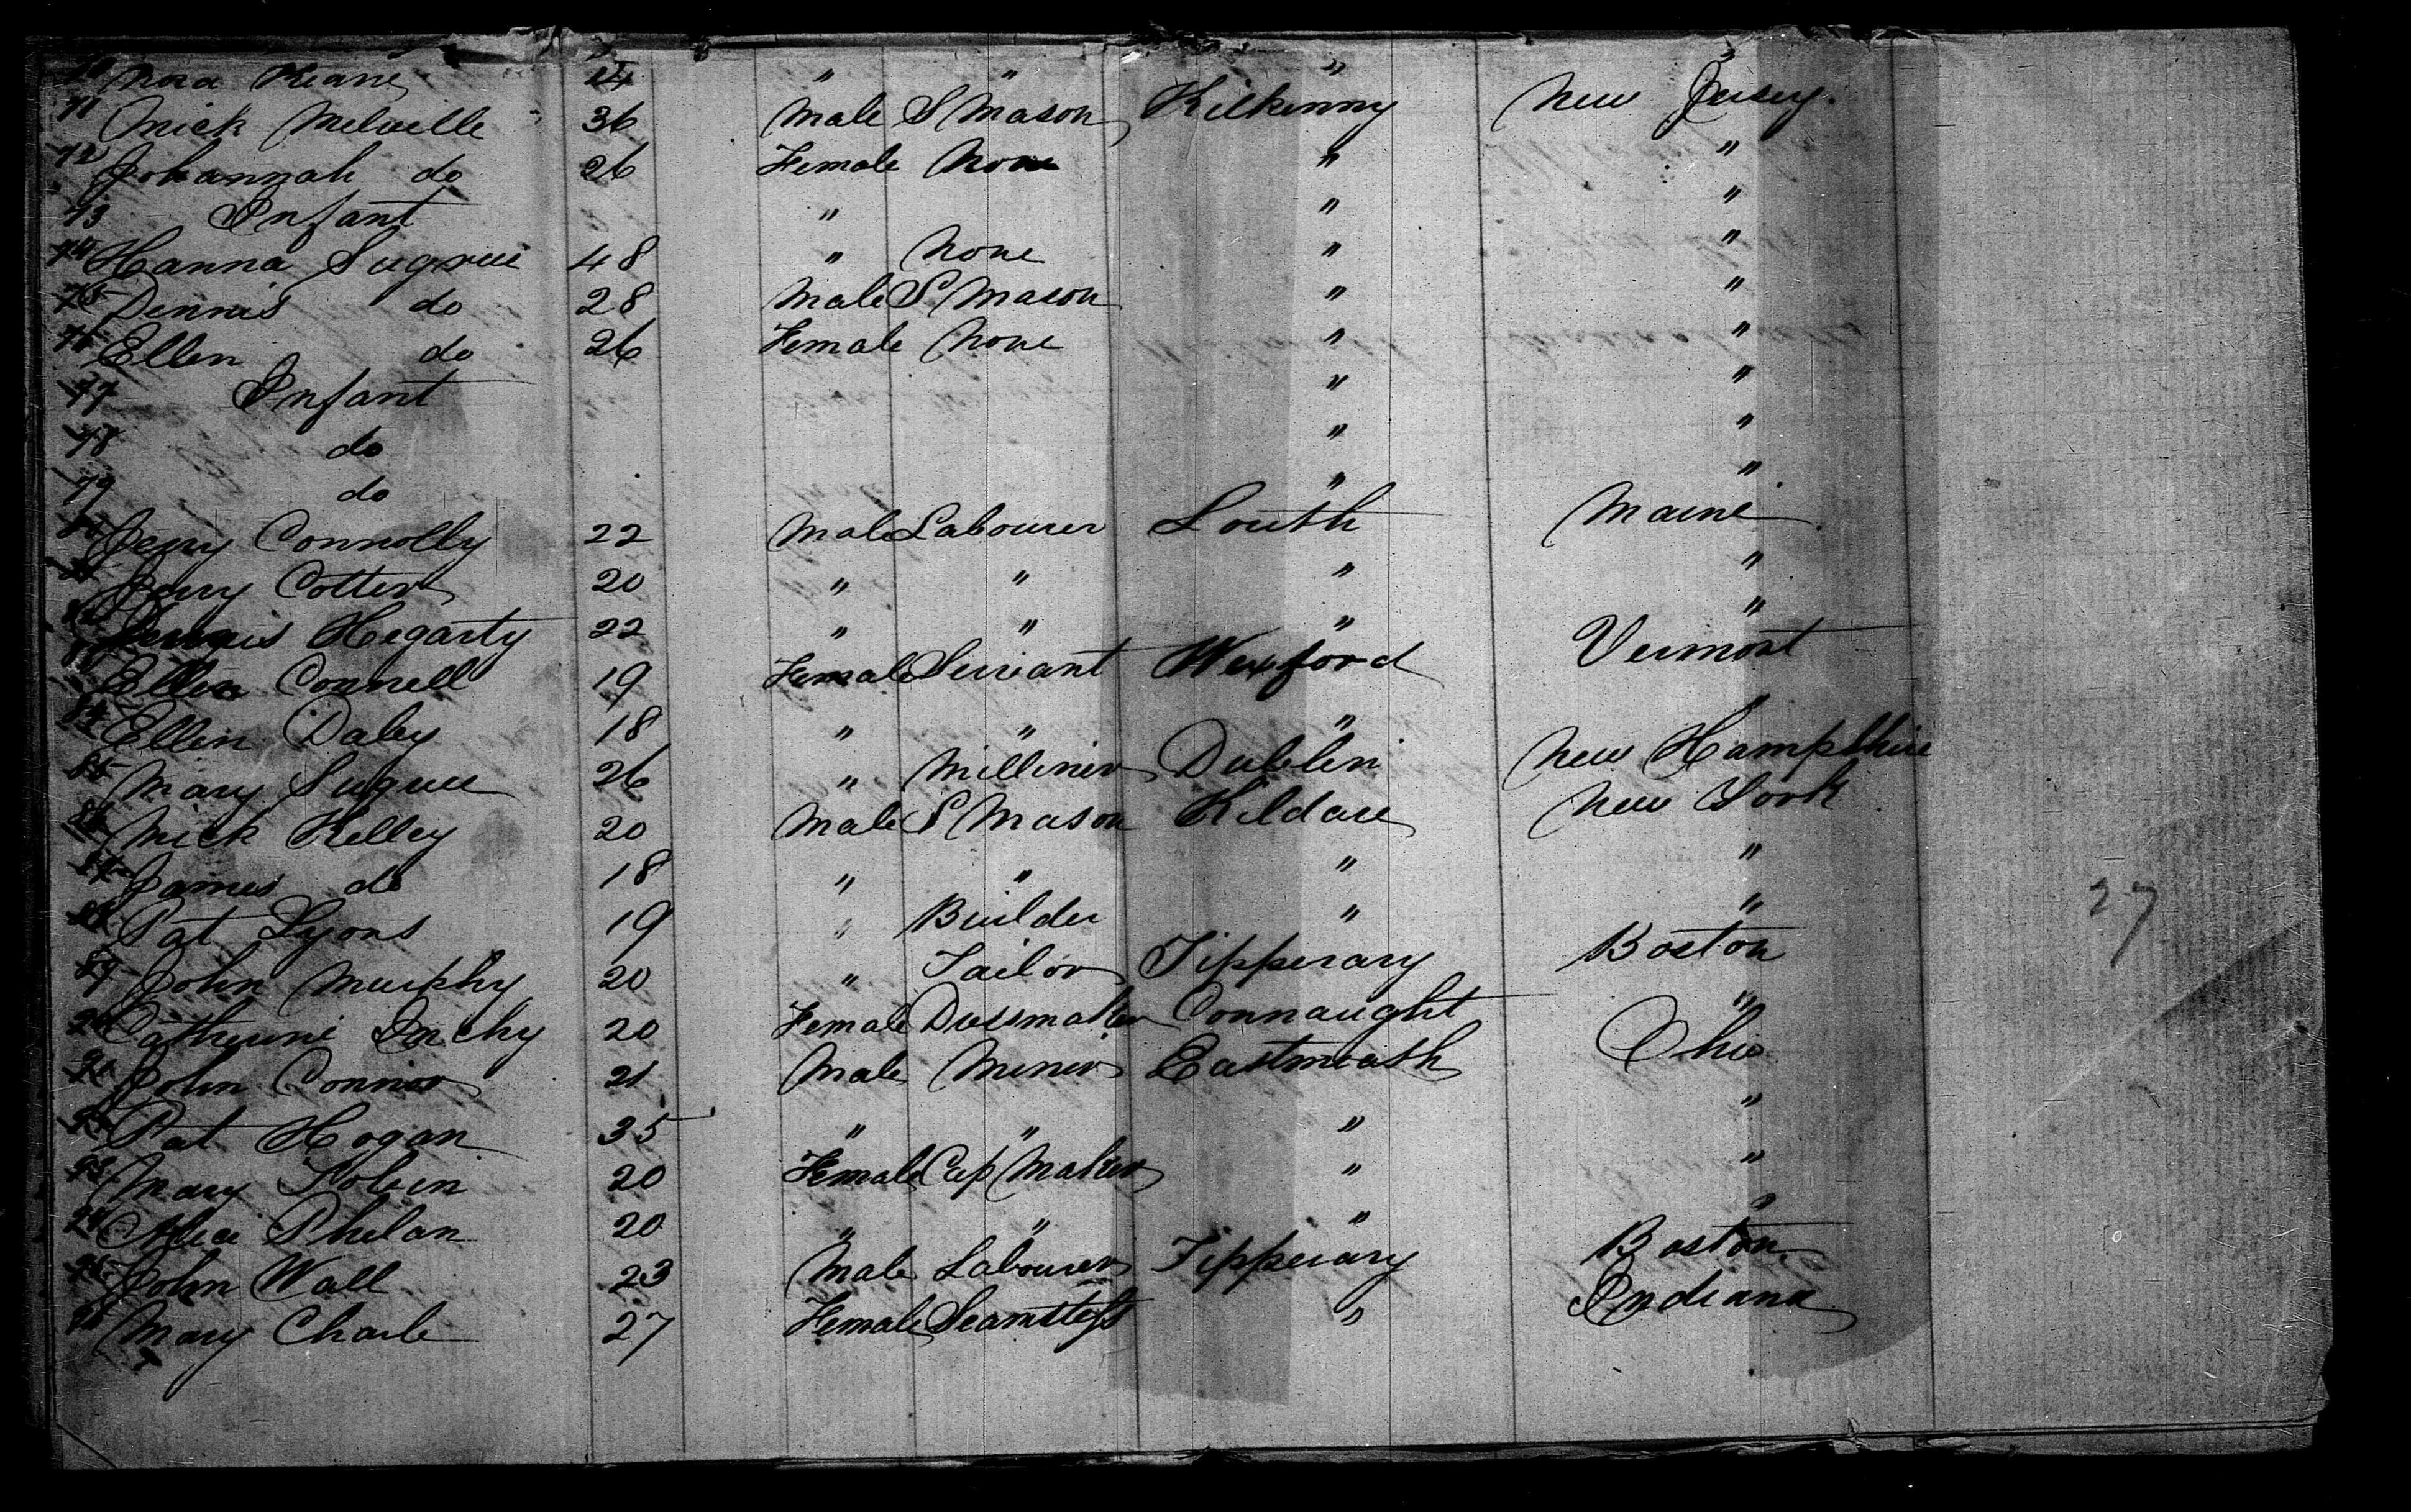 70 Nora Keane 24 " " " "
71 Mick Melville 36 Male S Mason Kilkenny New Jersey.
72 Johannah do 26 Female None " "
73 Infant " " "
74 Hanna Sugrue 48 " None " "
75 Dennis do 28 Male S Mason " "
76 Ellen do 26 Female None " "
77 Infant " "
78 do " "
79 do " "
80 Jerry Connolly 22 Male Labourer Louth Maine
81 Jerry Cotter 20 " " " "
82 Dennis Hegarty 22 " " " "
83 Ellen Connell 19 Female Servant Wexford Vermont
84 Ellen Daley 18 " " " "
85 Mary Sugrue 26 " Milliner Dublin New Hampshire
86 Mick Kelley 20 Male S Mason Kildare New York
87 James do 18 " " " "
88 Pat Lyons 19 " Builder " "
89 John Murphy 20 " Tailor Tipperary Boston
90 Catherine 20 Female Dressmaker Connaught "
91 John Connor 21 Male Miner Eastmeath Ohio
92 Pat Hogan 35 " " " "
93 Mary Tobin 20 Female Cap Maker " "
94 Alice Phelan 20 " " " "
95 John Wall 23 Male Labourer Tipperary Boston
96 Mary 27 Female Seamstess " Indiana
27